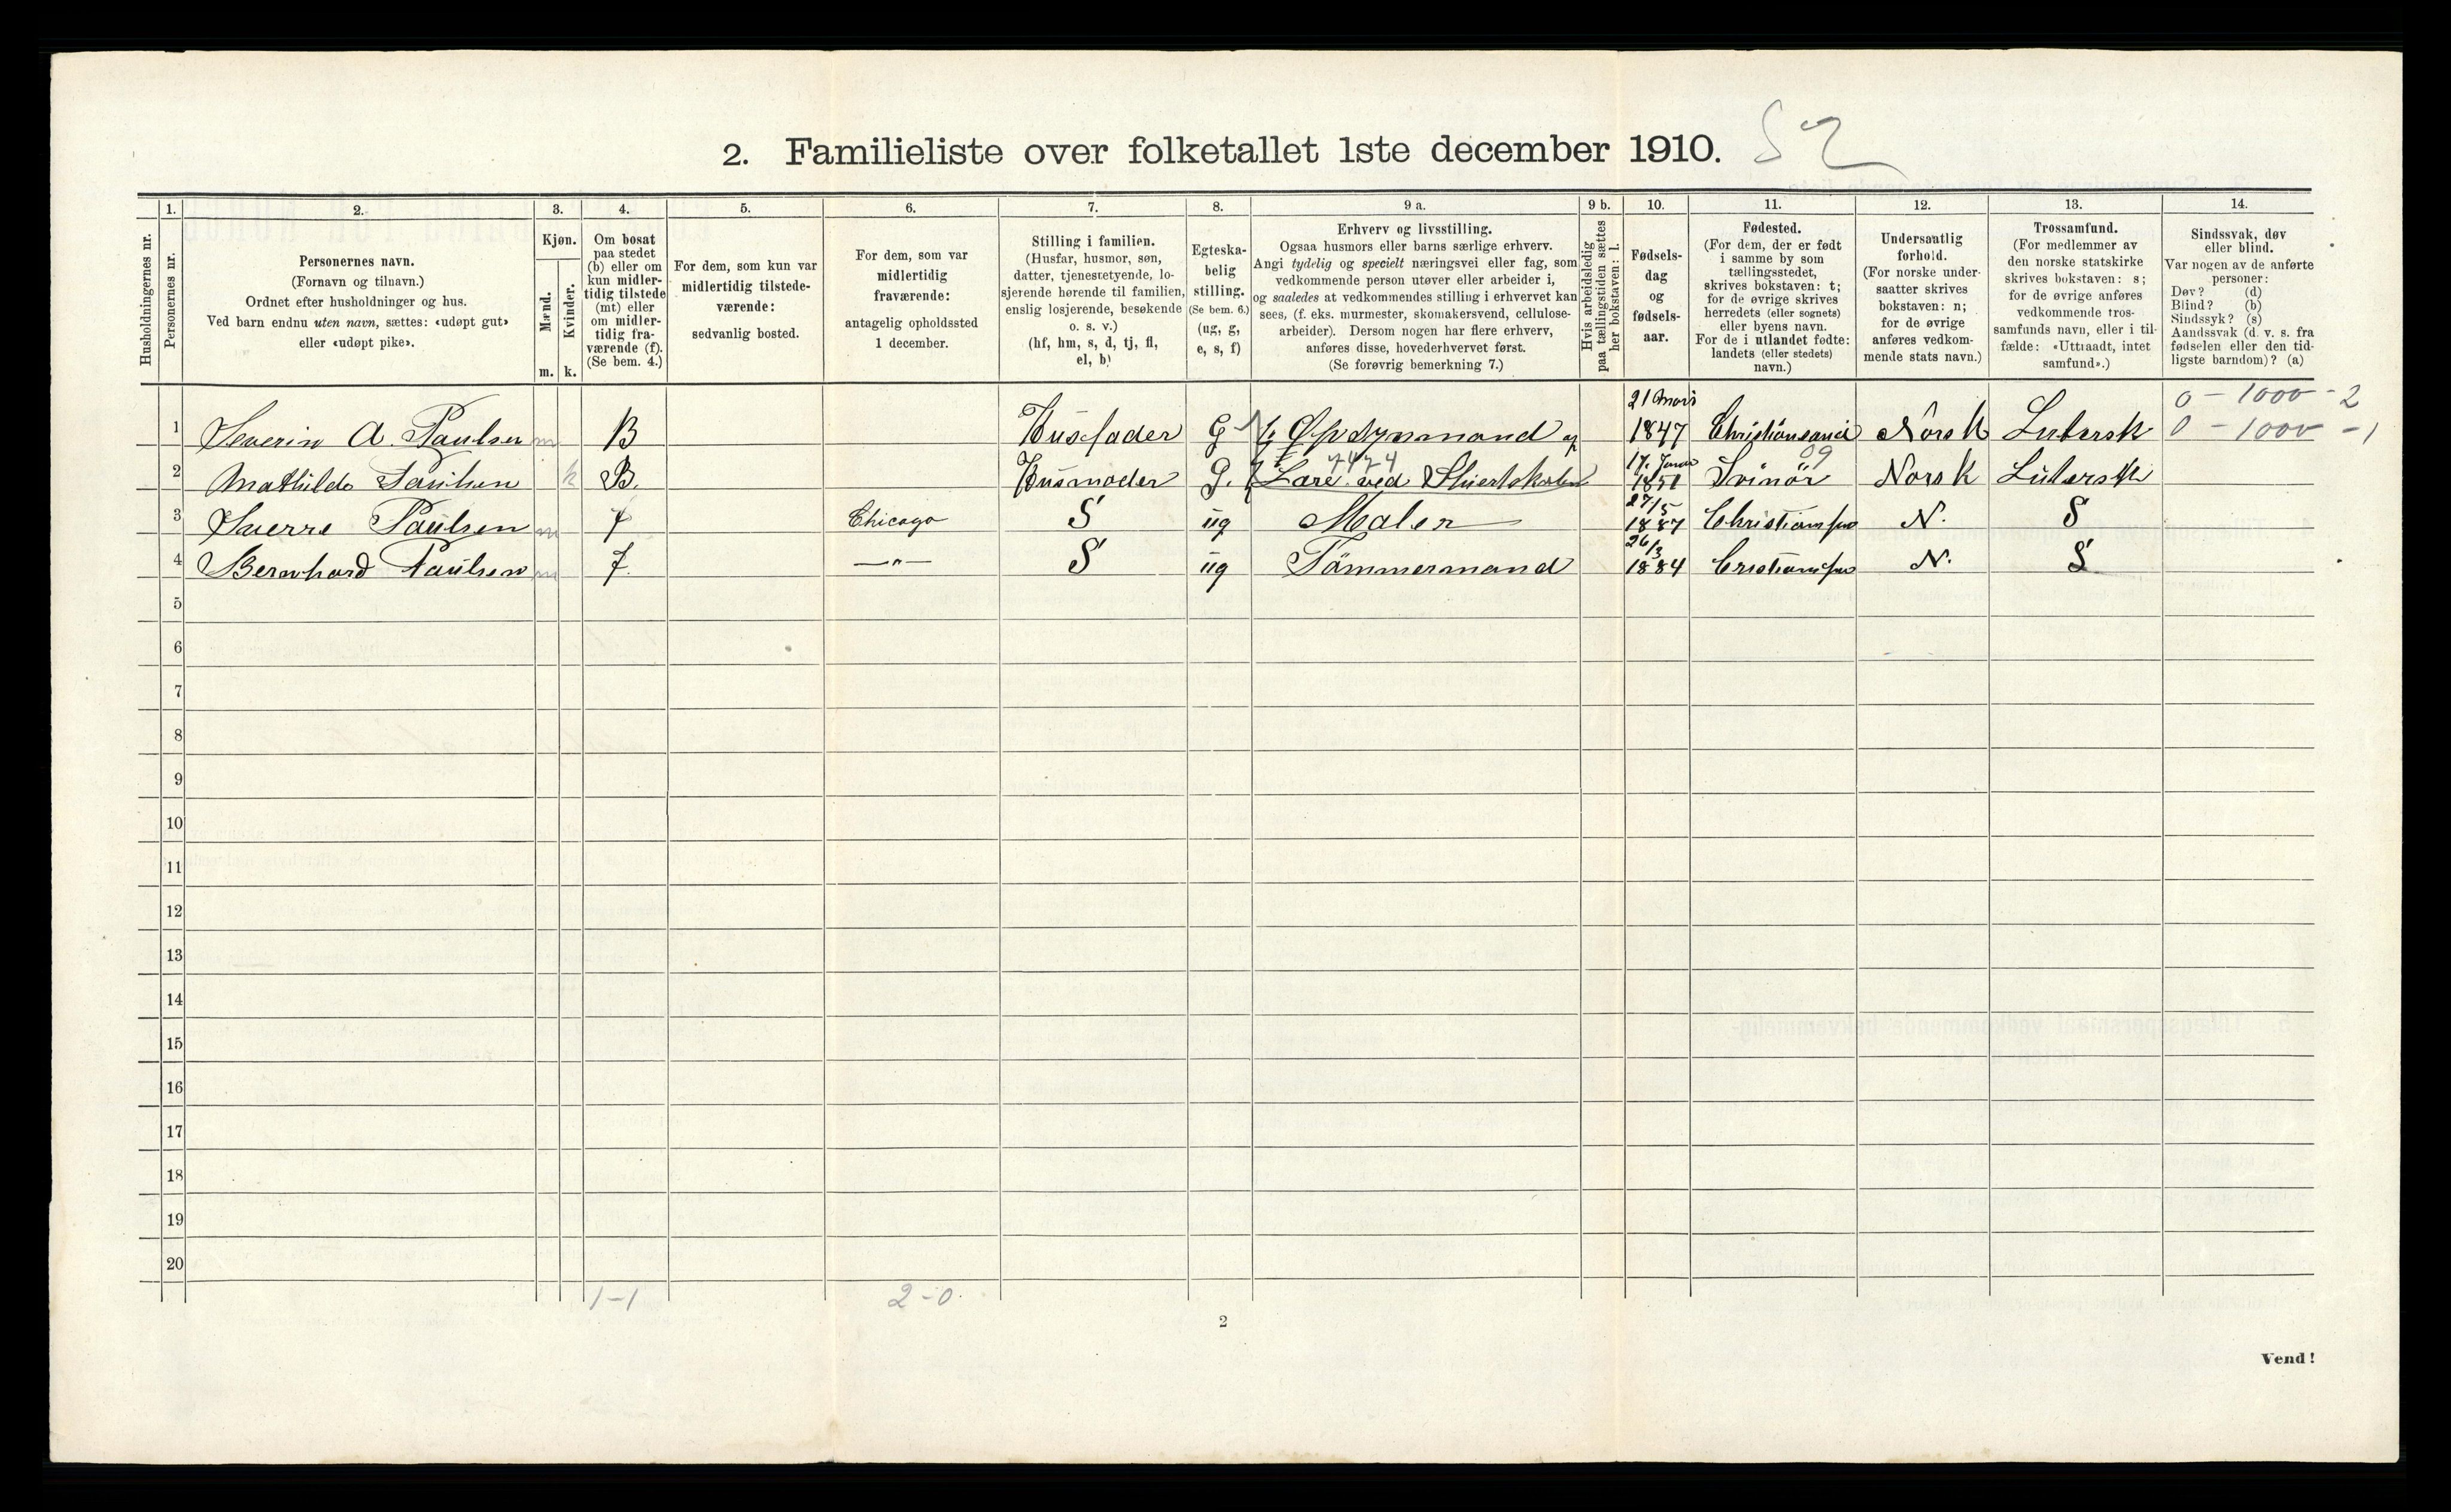 2. Familieliste over folketallet 1ste december 1910. 52
1. 2. 3. 4. 5. 6. 7. 8. 9 a. 9 b. 10. 11. 12. 13. 14.
Husholdningernes nr.
Personernes nr.
Personernes navn.
(Fornavn og tilnavn.)
Ordnet efter husholdninger og hus.
Ved barn endnu uten navn, sættes: «udøpt gut»
eller «udøpt pike».
Kjøn.
Mænd.
Kvinder.
m. k.
Om bosat
paa stedet
(b) eller om
kun midler-
tidig tilstede
(mt) eller
om midler-
tidig fra-
værende (f).
(Se bem. 4.)
For dem, som kun var
midlertidig tilstede-
værende:
sedvanlig bosted.
For dem, som var
midlertidig
fraværende:
antagelig opholdssted
1 december.
Stilling i familien.
(Husfar, husmor, søn,
datter, tjenestetyende, lo-
sjerende hørende til familien,
enslig losjerende, besøkende
o. s. v.)
(hf, hm, s, d, tj, fl,
el, b)
Egteska-
belig
stilling.
(Se bem. 6.)
(ug, g,
e, s, f)
Erhverv og livsstilling.
Ogsaa husmors eller barns særlige erhverv.
Angi tydelig og specielt næringsvei eller fag, som
vedkommende person utøver eller arbeider i,
og saaledes at vedkommendes stilling i erhvervet kan
sees, (f. eks. murmester, skomakersvend, cellulose-
arbeider). Dersom nogen har flere erhverv,
anføres disse, hovederhvervet først.
(Se forøvrig bemerkning 7.)
Hvis arbeidsledig
paa tællingstiden sættes
her bokstaven: l.
Fødsels-
dag
og
fødsels-
aar.
Fødested.
(For dem, der er født
i samme by som
tællingsstedet,
skrives bokstaven: t;
for de øvrige skrives
herredets (eller sognets)
eller byens navn.
For de i utlandet fødte:
landets (eller stedets)
navn.)
Undersaatlig
forhold.
(For norske under-
saatter skrives
bokstaven: n;
for de øvrige
anføres vedkom-
mende stats navn.)
Trossamfund.
(For medlemmer av
den norske statskirke
skrives bokstaven: s;
for de øvrige anføres
vedkommende tros-
samfunds navn, eller i til-
fælde: «Uttraadt, intet
samfund».)
Sindssvak, døv
eller blind.
Var nogen av de anførte
personer:
Døv? (d)
Blind? (b)
Sindssyk? (s)
Aandssvak (d. v. s. fra
fødselen eller den tid-
ligste barndom)? (a)
0 - 1000 - 2
1 Severin A. Paulsen m B Husfader G Opsynsmand og 21 Mars 1847 Christiansand Norsk Lutersk 0 - 1000 - 1
7474 09
2 Mathilde Paulsen k B. Husmoder G. ved 17. 1851 Svinör Norsk Lutersk
3 Sverre Paulsen m f Chicago S ug Maler 27/5 1887 N. S
4 Bernhard Paulsen m f. —„— S ug Tömmermand 26/3 1884 N. S
5
6
7
8
9
10
11
12
13
14
15
16
17
18
19
20
1-1 2-0.
2
Vend!